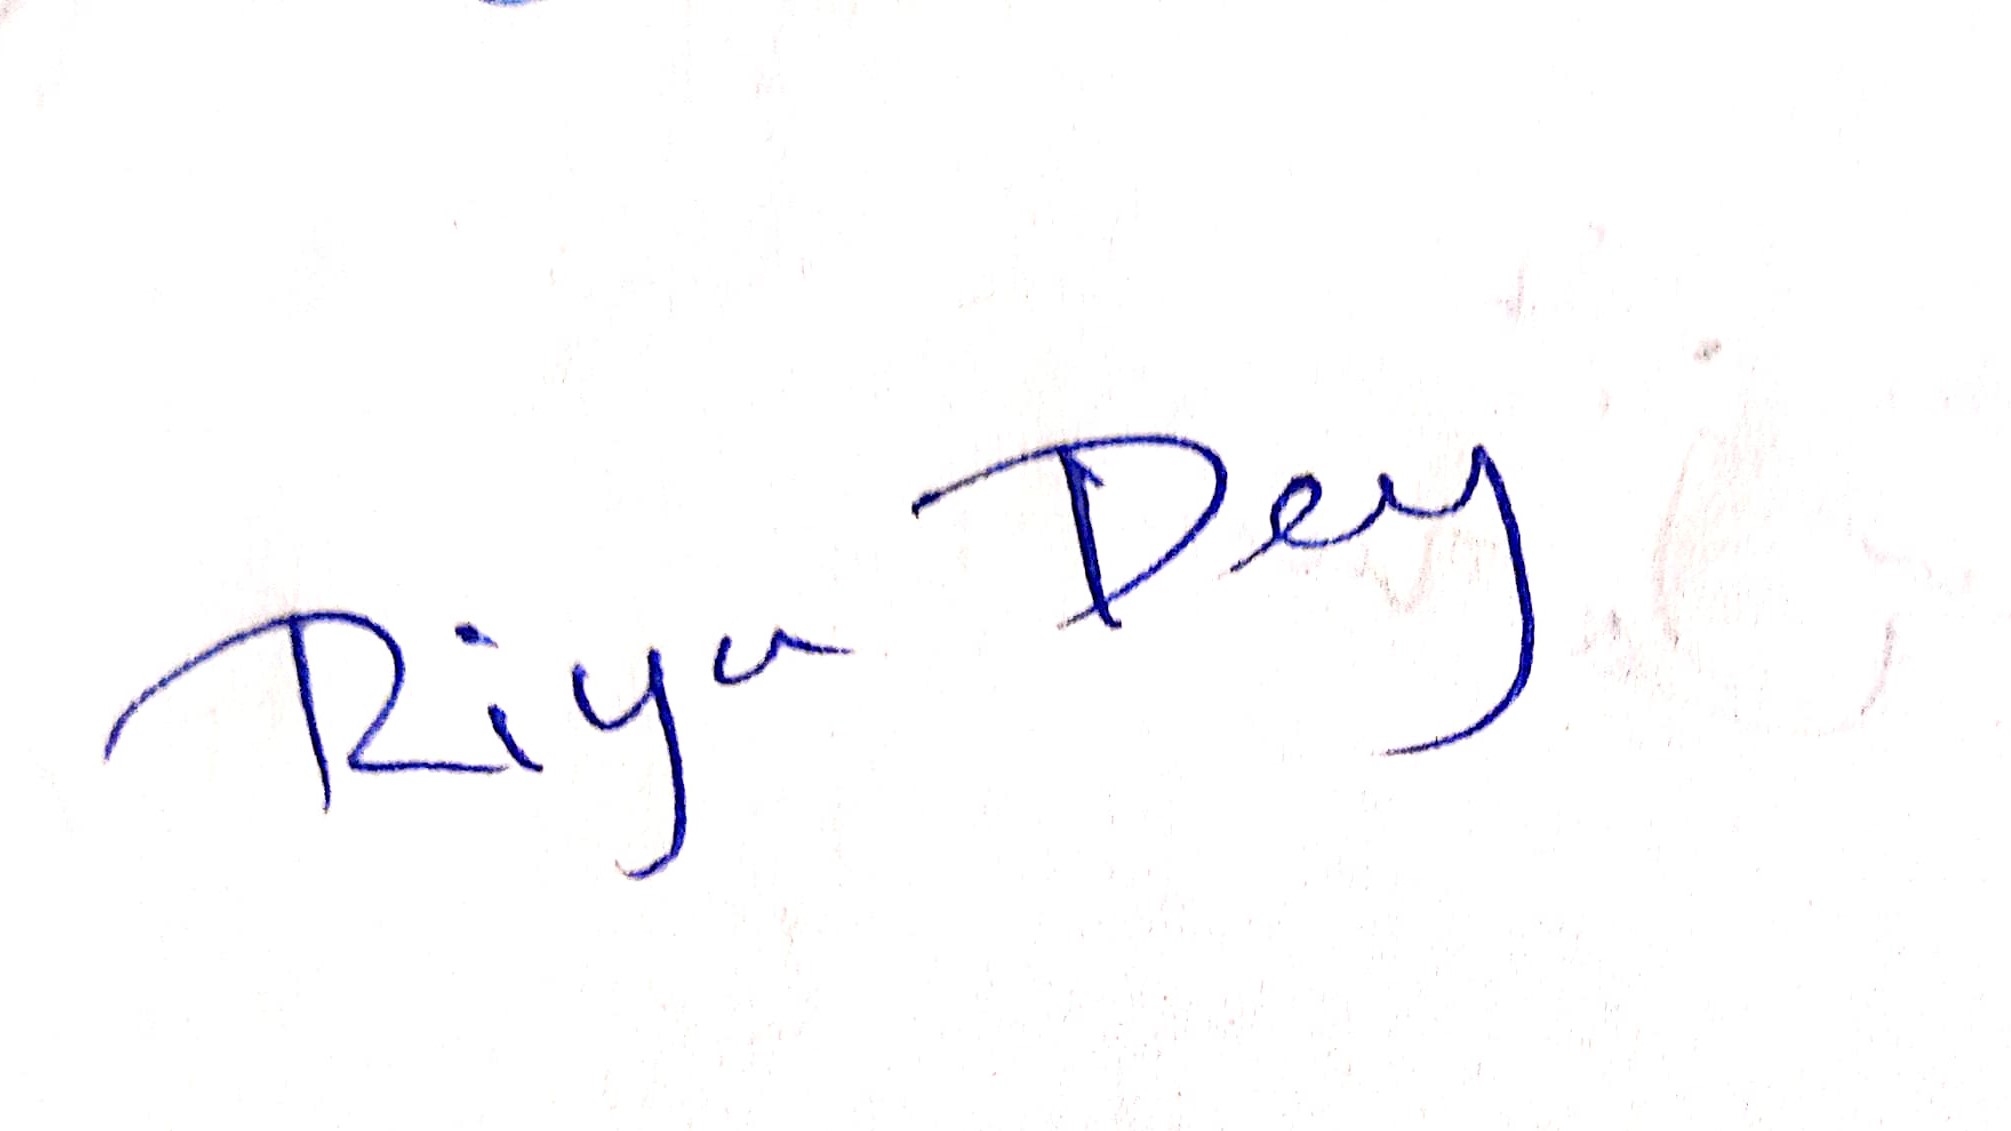 Riya Dey